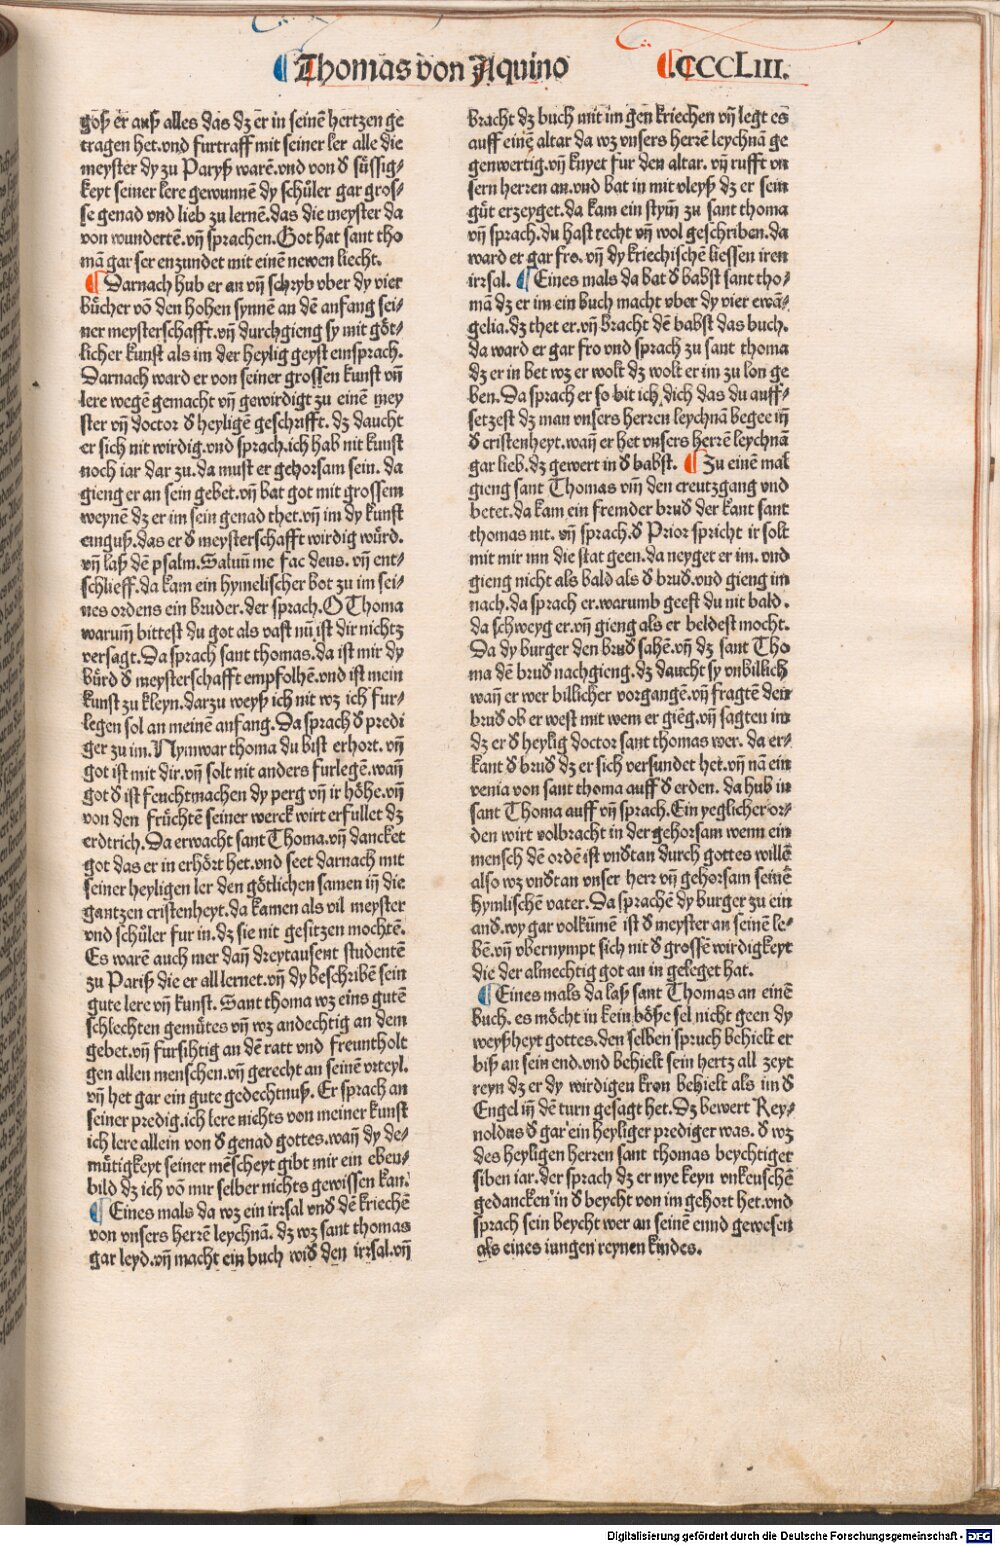 Thomas von Aquino
CCCCLIII.
goß er auß alles das dz er in seinē hertzen ge
tragen het.vnd furtraff mit seiner ler alle die
meyster dy zu Paryß warē.vnd von d̕ süssig⸗
keyt seiner lere gewunnē dy schüler gar gros⸗
se genad vnd lieb zu lernē.das die meyster da
von wundertē.vn̄ sprachen.Got hat sant tho
mā gar ser enzundet mit einē newen liecht.
¶ Darnach hub er an vn̄ schryb vber dy vier
bücher vō den hohen synnē an dē anfang sei⸗
ner meysterschafft.vn̄ durchgieng sy mit göt⸗
licher kunst als im der heylig geyst einsprach.
Darnach ward er von seiner grossen kunst vn̄
lere wegē gemacht vn̄ gewirdigt zu einē mey
ster vn̄ doctor d̕ heyligē geschrifft. dz daucht
er sich nit wirdig.vnd sprach.ich hab nit kunst
noch iar dar zu.da must er gehorsam sein. da
gieng er an sein gebet.vn̄ bat got mit grossem
weynē dz er im sein genad thet.vn̄ im dy kunst
einguß.das er d̕ meysterschafft wirdig würd.
vn̄ laß dē psalm.Saluū me fac deus. vn̄ ent⸗
schlieff.da kam ein hymelischer bot zu im sei⸗
nes ordens ein bruder.der sprach.O Thoma
warum̄ bittest du got als vast nū ist dir nichtz
versagt.Da sprach sant thomas.da ist mir dy
bürd d̕ meysterschafft empfolhē.vnd ist mein
kunst zu kleyn.darzu weyß ich nit wz ich fur⸗
legen sol an meinē anfang.Da sprach d̕ predi
ger zu im.Nym war thoma du bist erhort. vn̄
got ist mit dir.vn̄ solt nit anders furlegē.wan̄
got d̕ ist feuchtmachen dy perg vn̄ ir höhe.vn̄
von den früchtē seiner werck wirt erfullet dz
erdtrich.Da erwacht sant Thoma.vn̄ dancket
got das er in erhört het.vnd seet darnach mit
seiner heyligen ler den götlichen samen in̄ die
gantzen cristenheyt.da kamen als vil meyster
vnd schüler fur in.dz sie nit gesitzen mochtē.
Es warē auch mer dan̄ dreytausent studentē
zu Pariß die er all lernet.vn̄ dy beschribē sein
gute lere vn̄ kunst. Sant thoma wz eins gutē
schlechten gemütes vn̄ wz andechtig an dem
gebet.vn̄ fursihtig an dē ratt vnd freuntholt
gen allen menschen.vn̄ gerecht an seinē vrteyl.
vn̄ het gar ein gute gedechtnuß. Er sprach an
seiner predig.ich lere nichts von meiner kunst
ich lere allein von d̕ genad gottes.wan̄ dy de⸗
mütigkeyt seiner mēscheyt gibt mir ein eben⸗
bild dz ich vō mir selber nichts gewissen kan.
¶ Eines mals da wz ein irrsal vnd̕ dē kriechē
von vnsers herrē leychnā. dz wz sant thomas
gar leyd.vn̄ macht ein buch wid̕ den irrsal.vn̄
bracht dz buch mit im gen kriechen vn̄ legt es
auff einē altar da wz vnsers herrē leychnā ge
genwertig.vn̄ knyet fur den altar. vn̄ rufft vn
sern herren an.vnd bat in mit vleyß dz er sein
güt erzeyget.da kam ein stym̄ zu sant thoma
vn̄ sprach.du hast recht vn̄ wol geschriben.da
ward er gar fro. vn̄ dy kriechischē liessen iren
irrsal. ¶ Eines mals da bat d̕ babst sant tho⸗
mā dz er im ein buch macht vber dy vier ewā⸗
gelia.dz thet er.vn̄ bracht dē babst das buch.
da ward er gar fro vnd sprach zu sant thoma
dz er in bet wz er wolt dz wolt er im zu lon ge
ben.Da sprach er so bit ich dich das du auff⸗
setzest dz man vnsers herren leychnā begee in̄
d̕ cristenheyt.wan̄ er het vnsers herrē leychnā
gar lieb.dz gewert in d̕ babst. ¶ Zu einē mal
gieng sant Thomas vm̄ den creutzgang vnd
betet.da kam ein fremder brud̕ der kant sant
thomas nit. vn̄ sprach.d̕ Prior spricht ir solt
mit mir inn die stat geen.da neyget er im. vnd
gieng nicht als bald als d̕ brud̕.vnd gieng im
nach.da sprach er.warumb geest du nit bald.
da schweyg er.vn̄ gieng als er beldest mocht.
Da dy burger den brud̕ sahē.vn̄ dz sant Tho
ma dē brud̕ nachgieng.dz daucht sy vnbillich
wan̄ er wer billicher vorgangē.vn̄ fragtē den
brud̕ ob er west mit wem er giēg.vn̄ sagten im
dz er d̕ heylig doctor sant thomas wer. da er⸗
kant d̕ brud̕ dz er sich versundet het.vn̄ nā ein
venia von sant thoma auff d̕ erden. da hub in
sant Thoma auff vn̄ sprach.Ein yeglicher or⸗
den wirt volbracht in der gehorsam wenn ein
mensch dē ordē ist vnd̕tan durch gottes willē
also wz vnd̕tan vnser herr vn̄ gehorsam seinē
hymlischē vater.Da sprachē dy burger zu ein
and̕.wy gar volkūmē ist d̕ meyster an seinē le⸗
bē.vn̄ vbernympt sich nit d̕ grossē wirdigkeyt
die der almechtig got an in geleget hat.
¶ Eines mals da laß sant Thomas an einē
buch. es möcht in kein böße sel nicht geen dy
weyßheyt gottes.den selben spruch behielt er
biß an sein end.vnd behielt sein hertz all zeyt
reyn dz er dy wirdigen kron behielt als im d̕
Engel in̄ dē turn gesagt het.Dz bewert Rey⸗
noldus d̕ gar ein heyliger prediger was. d̕ wz
des heyligen herren sant thomas beychtiger
siben iar.der sprach dz er nye keyn vnkeuschē
gedancken in d̕ beycht von im gehort het.vnd
sprach sein beycht wer an seinē ennd gewesen
als eines iungen reynen kindes.
Digitalisierung gefördert durch die Deutsche Forschungsgemeinschaft - DFG